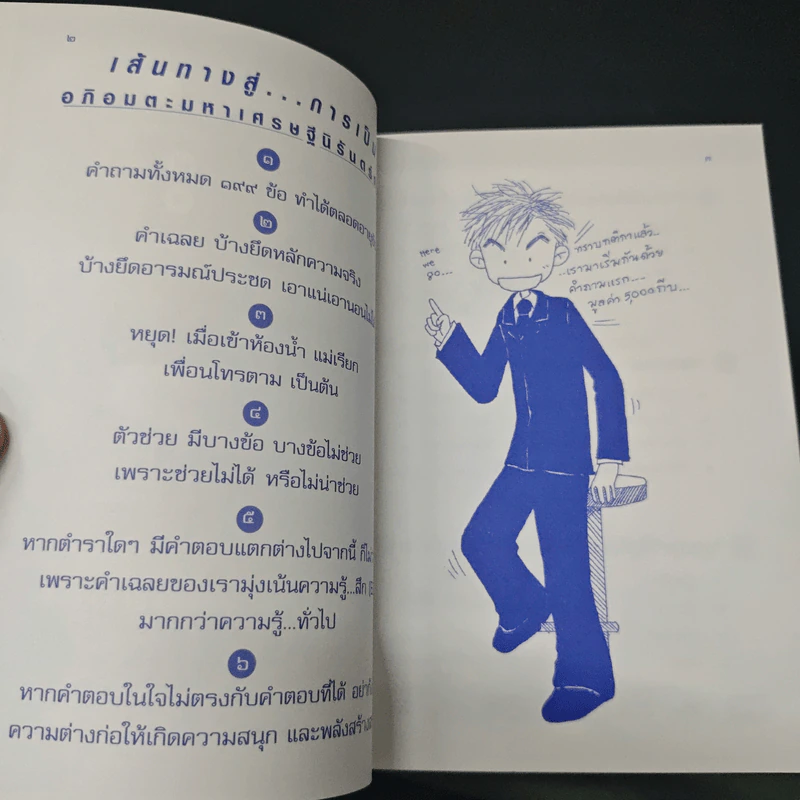 ๒
เส้นทางสู่...การเป็น
อภิอมตะมหาเศรษฐีนิรันดร์
๑
คำถามทั้งหมด ๑๙๙ ข้อ ทำได้ตลอดอายุ
๒
คำเฉลย บ้างยึดหลักความจริง
บ้างยึดอารมณ์ประชด เอาแน่เอานอนไม่
๓
หยุด! เมื่อเข้าห้องน้ำ แม่เรียก
เพื่อนโทรตาม เป็นต้น
๔
ตัวช่วย มีบางข้อ บางข้อไม่ช่วย
เพราะช่วยไม่ได้ หรือไม่น่าช่วย
๕
หากตำราใดๆ มีคำตอบแตกต่างไปจากนี้
เพราะคำเฉลยของเรามุ่งเน้นความรู้...สึก
มากกว่าความรู้...ทั่วไป
๖
หากคำตอบในใจไม่ตรงกับคำตอบที่ได้
ความต่างก่อให้เกิดความสนุก และพลังสร้าง
๓
Here
we
go...
ทราบกติกาแล้ว..
..เรามาเริ่มกันด้วย
คำถามแรก....
มูลค่า 5,000กีบ...